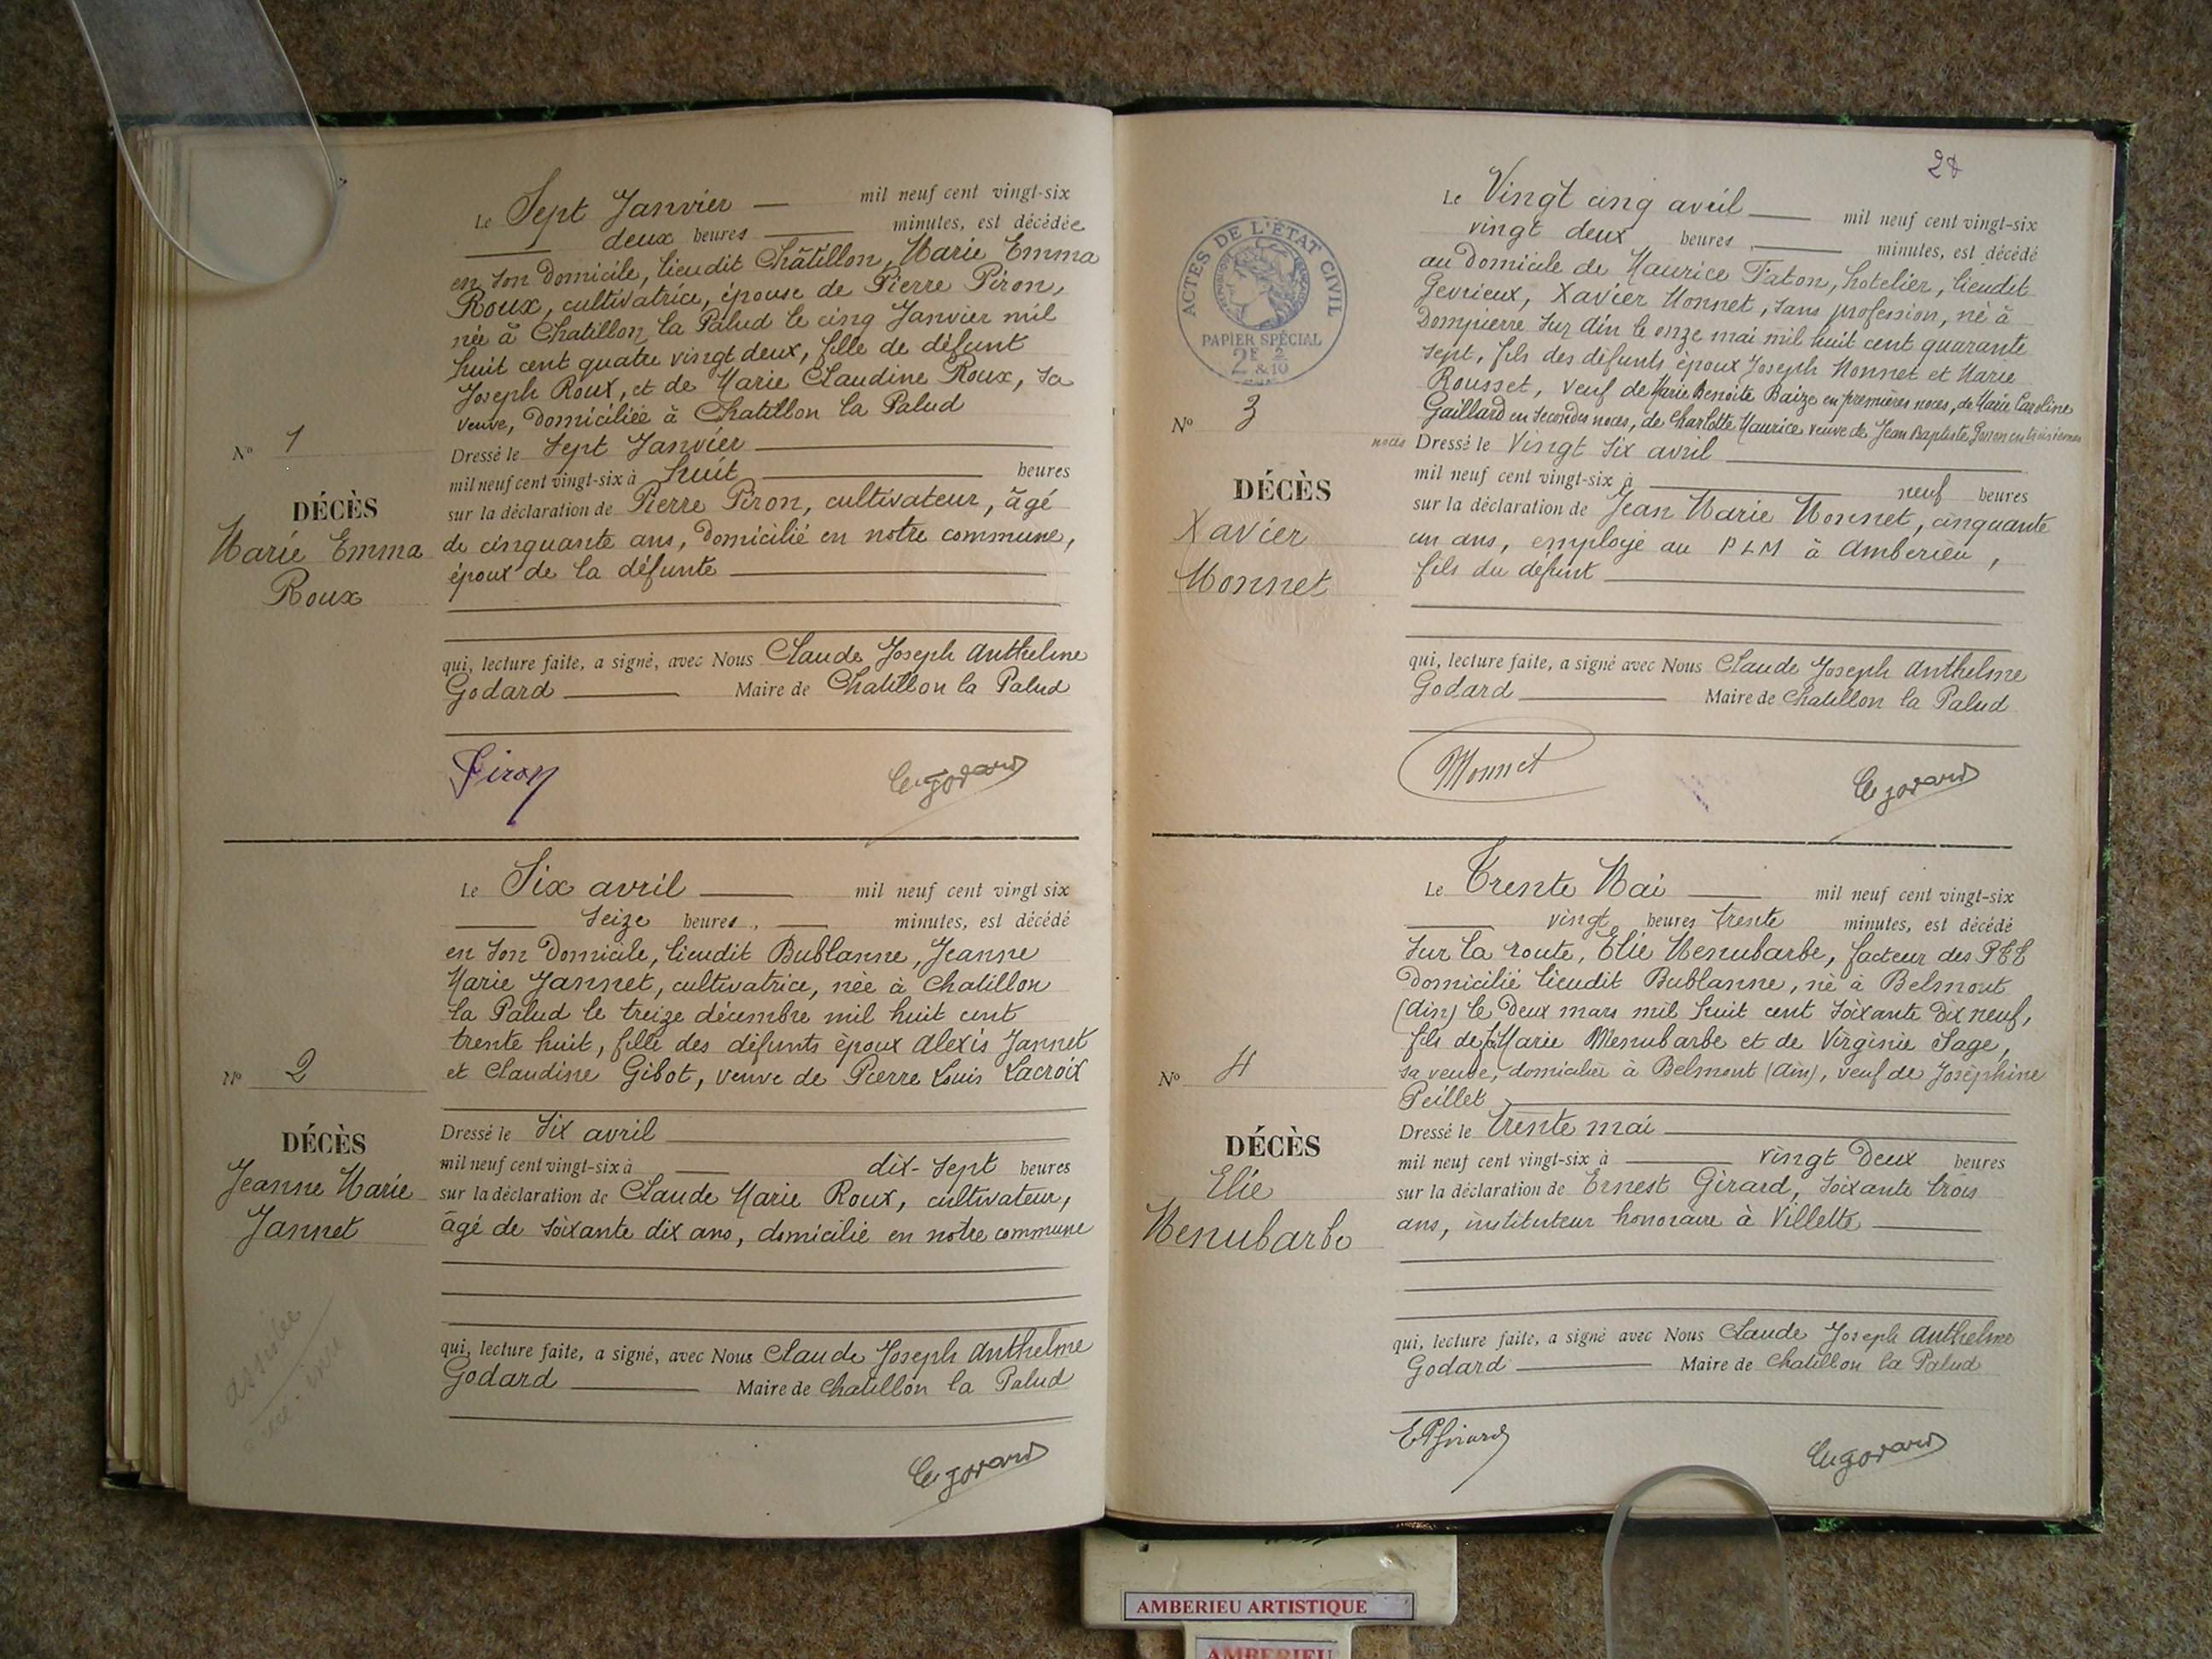 Le Sept Janvier — mil neuf cent vingt-six
deux heures — minutes, est décédée
en son domicile, lieudit Châtillon, Marie Emma
Roux, cultivatrice, épouse de Pierre Piron,
née à Chatillon la Palud le cinq Janvier mil
huit cent quatre vingt deux, fille de défunt
Joseph Roux, et de Marie Claudine Roux, sa
veuve, domiciliée à Chatillon la Palud
Nº 1
Dressé le Sept Janvier
mil neuf cent vingt-six à huit heures
DÉCÈS
Marie Emma
Roux
sur la déclaration de Pierre Piron, cultivateur, âgé
de cinquante ans, domicilié en notre commune,
époux de la défunte
qui, lecture faite, a signé, avec Nous Claude Joseph Anthelme
Godard — Maire de Chatillon la Palud
Piron
Le Six avril — mil neuf cent vingt six
seize heures, — minutes, est décédé
en son domicile, lieudit Bublanne, Jeanne
Marie Jannet, cultivatrice, née à Chatillon
la Palud le treize décembre mil huit cent
trente huit, fille des défunts époux Alexis Jannet
et Claudine Gibot, veuve de Pierre Louis Lacroix
Nº 2
Dressé le six avril
mil neuf cent vingt-six à — dix-sept heures
DÉCÈS
Jeanne Marie
Jannet
sur la déclaration de Claude Marie Roux, cultivateur,
âgé de soixante dix ans, domicilié en notre commune
qui, lecture faite, a signé, avec Nous Claude Joseph Anthelme
Godard — Maire de Chatillon la Palud
ACTES DE L'ÉTAT CIVIL
PAPIER SPÉCIAL
Le Vingt cinq avril — mil neuf cent vingt-six
vingt deux heures, — minutes, est décédé
au domicile de Maurice Faton, hotelier, lieudit
Gevrieux, Xavier Monnet, sans profession, né à
Dompierre sur Ain le onze mai mil huit cent quarante
sept, fils des défunts époux Joseph Monnet et Marie
Rousset, veuf de Marie Benoite Baize en premières noces, de Marie Caroline
Gaillard en secondes noces, de Charlotte Maurice veuve de Jean Baptiste en troisièmes
noces
Nº 3
Dressé le vingt six avril
mil neuf cent vingt-six à — neuf heures
DÉCÈS
Xavier
Monnet
sur la déclaration de Jean Marie Monnet, cinquante
un ans, employé au PLM à Amberieu,
fils du défunt
qui, lecture faite, a signé avec Nous Claude Joseph Anthelme
Godard — Maire de Chatillon la Palud
Monnet
Le Trente Mai — mil neuf cent vingt-six
vingt heures trente minutes, est décédé
sur la route, Elie Menubarbe, facteur des PTT
domicilié lieudit Bublanne, né à Belmont
(Ain) le deux mars mil huit cent soixante dix neuf,
fils de Marie Menubarbe et de Virginie Sage,
sa veuve, domiciliée à Belmont (Ain), veuf de Joséphine
Peillet
Nº 4
Dressé le trente mai
mil neuf cent vingt-six à — vingt deux heures
DÉCÈS
Elie
Menubarbe
sur la déclaration de Ernest Girard, soixante trois
ans, instituteur honoraire à Villette
qui, lecture faite, a signé avec Nous Claude Joseph Anthelme
Godard — Maire de Chatillon la Palud
AMBERIEU ARTISTIQUE
AMBERIEU